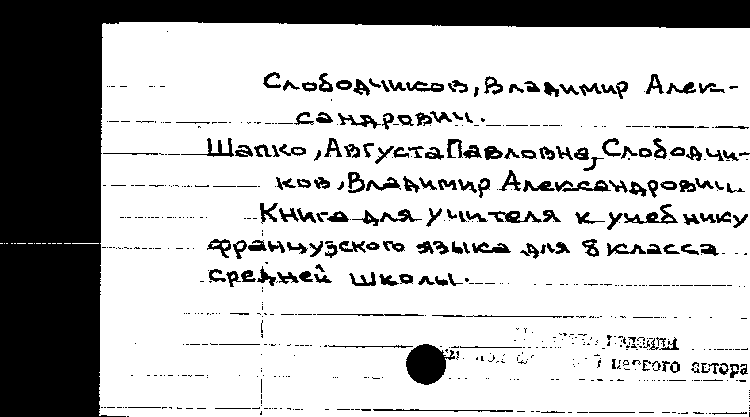 Слободчиков, Владимир Алек-
сандрович.
Шапко, Августа Павловна, Слободчи-
ков, Владимир Александрович.
Книга для учителя к учебнику
французского языка для 8 класса
средней школы.
издания
первого автора